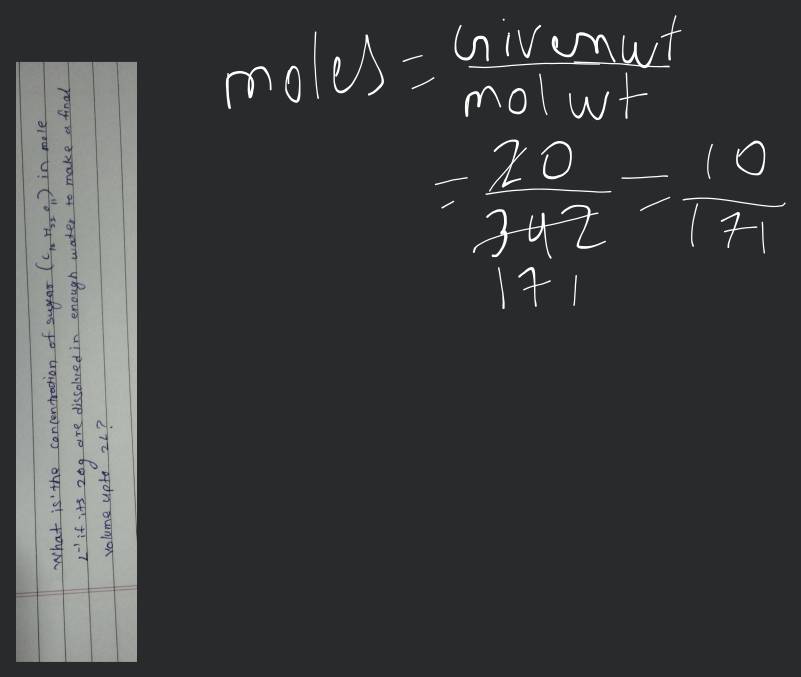 What is the concentration of sugar (C₁₂H₂₂O₁₁) in mole
L⁻¹ if its 20g are dissolved in enough water to make a final
volume upto 2L?
moles = Given wt
mol wt
= 20 = 10
342 171
171